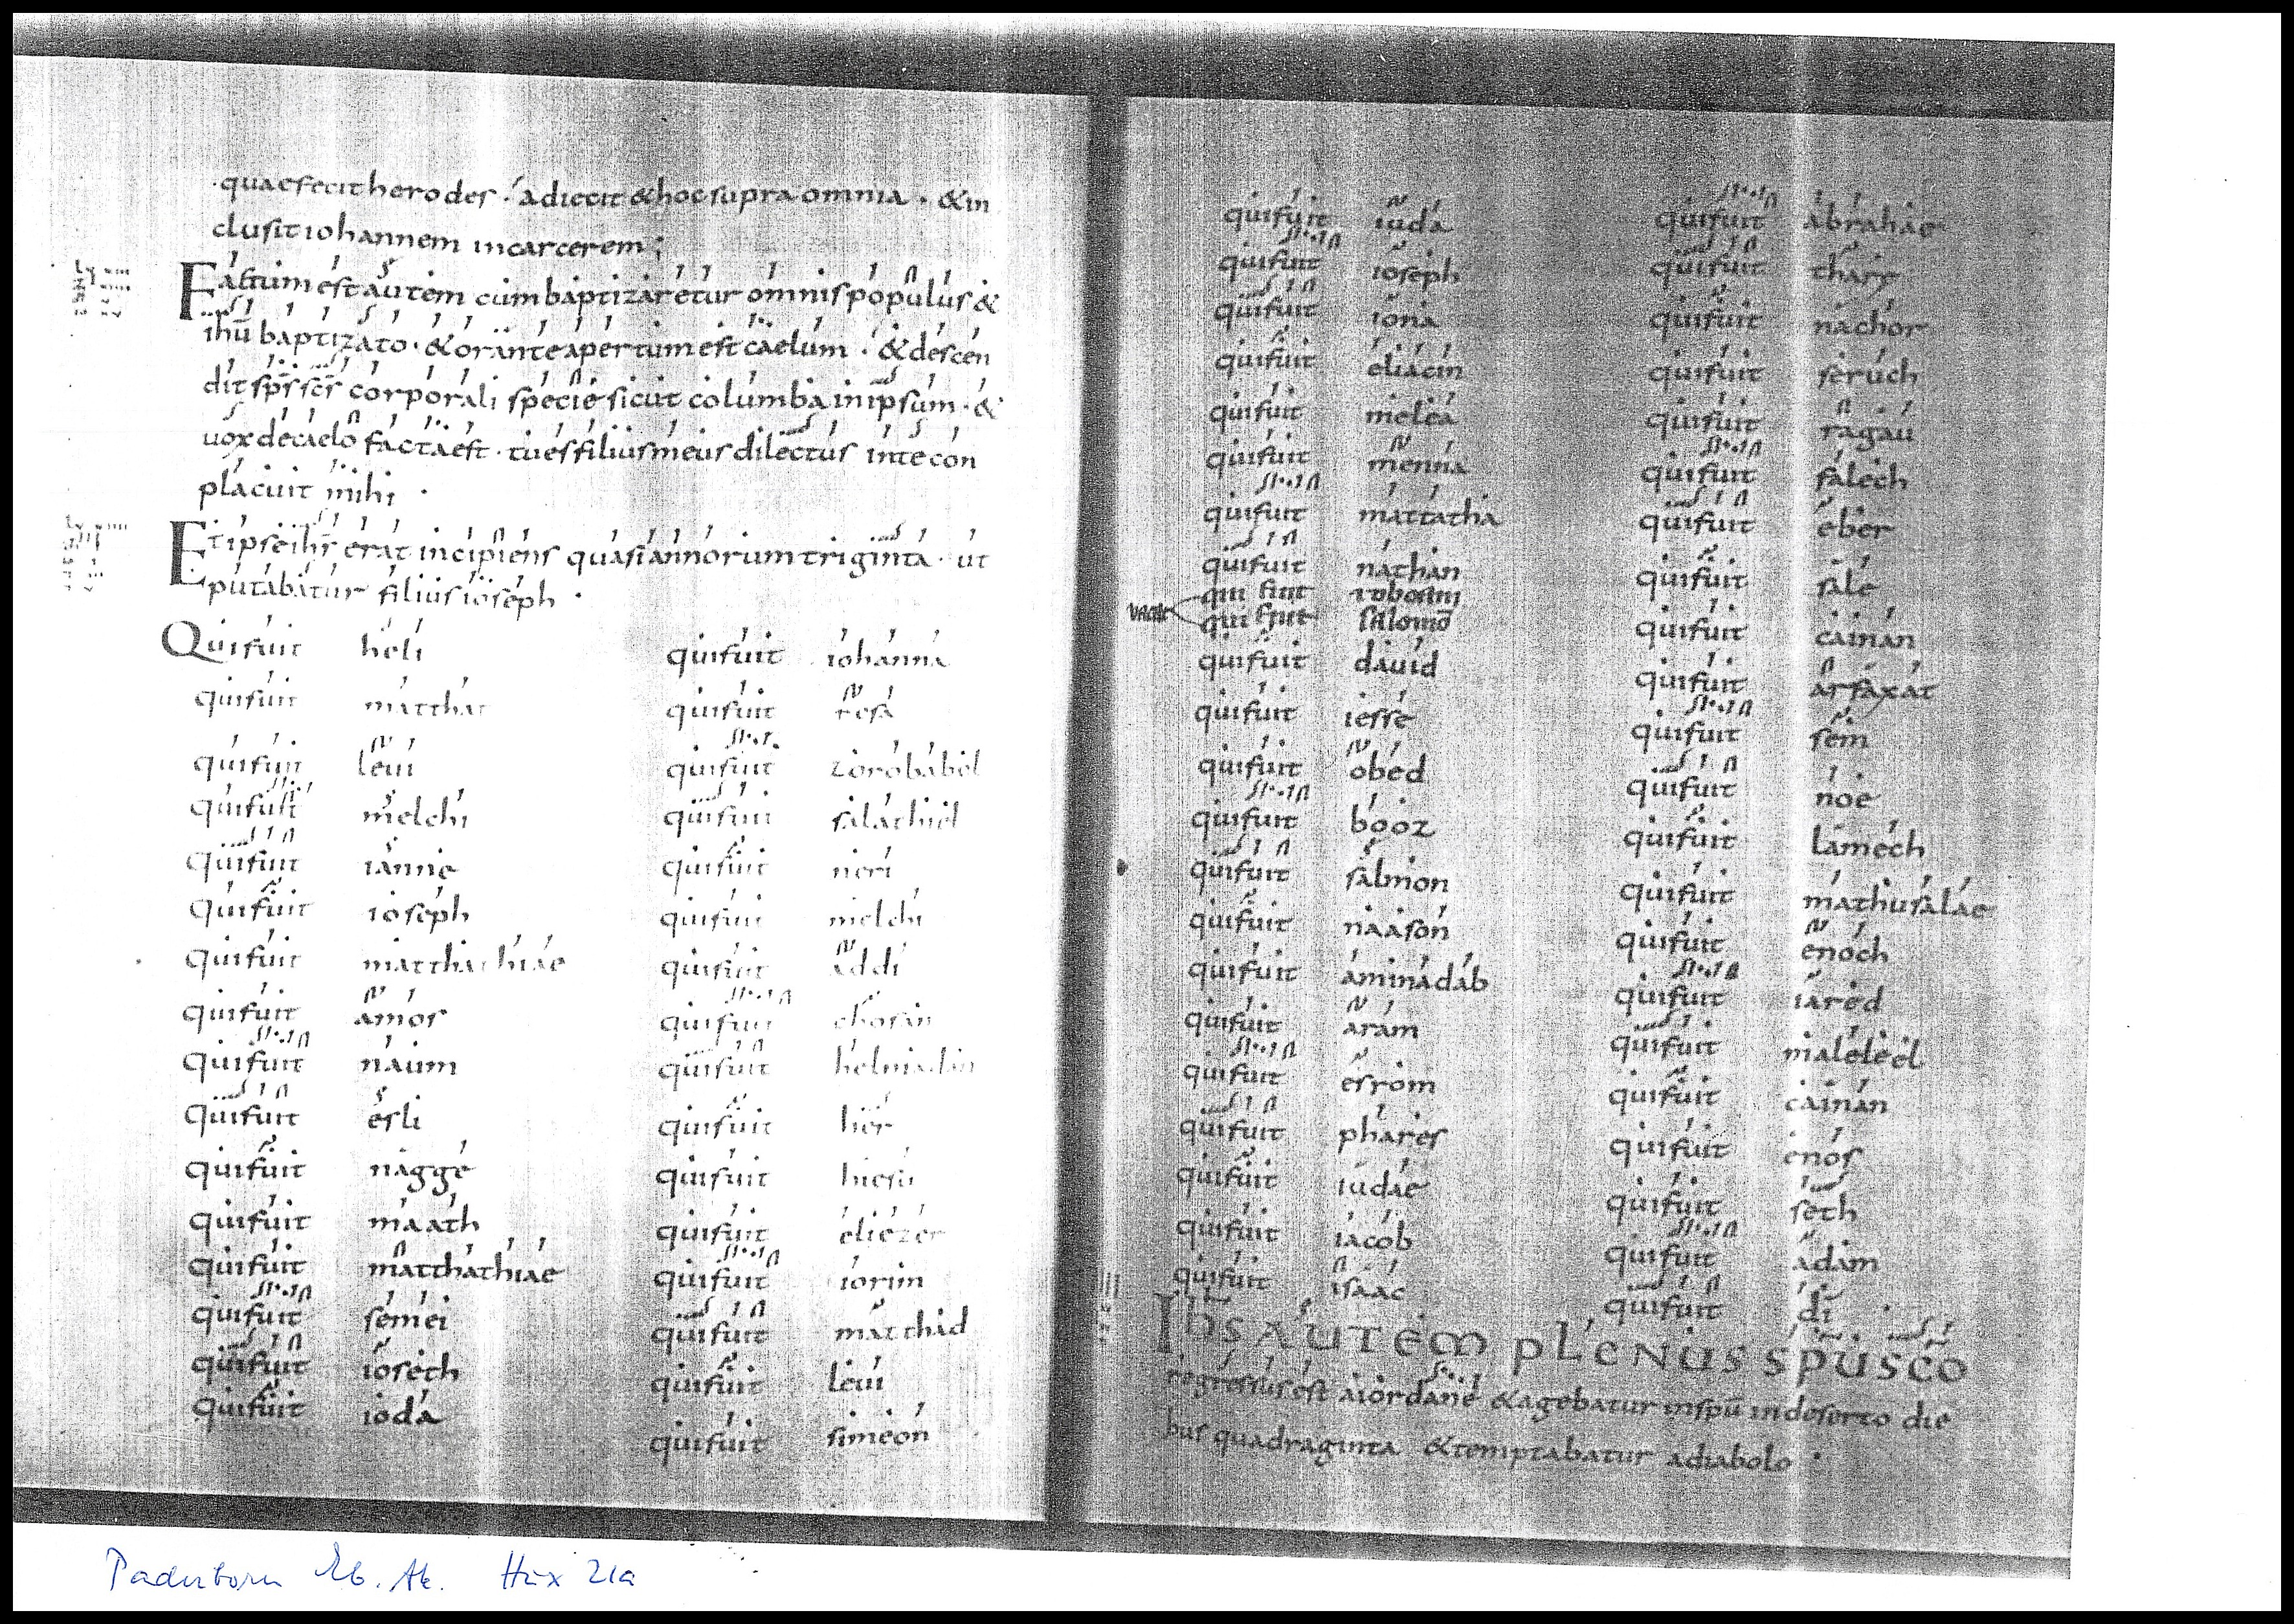 quaefecitherodes · adiecit &hoc supra omnia · &in
clusit iohannem incarcerem ;
Factum est autem cum baptizaretur omnis populus &
ihu baptizato · &orante apertum est caelum · &descen
dit sps scs corporali specie sicut columba in ipsum · &
uox de caelo facta est · tu es filius meus dilectus inte con
placuit mihi ·
Et ipse ihs erat incipiens quasi annorum triginta · ut
putabatur filius ioseph ·
Qui fuit heli
qui fuit matthat
qui fuit leui
qui fuit melchi
qui fuit ianne
qui fuit ioseph
qui fuit matthathiae
qui fuit amos
qui fuit naum
qui fuit esli
qui fuit nagge
qui fuit maath
qui fuit matthathiae
qui fuit semei
qui fuit ioseth
qui fuit ioda
qui fuit iohanna
qui fuit resa
qui fuit zorobabel
qui fuit salathiel
qui fuit neri
qui fuit melchi
qui fuit addi
qui fuit chosan
qui fuit helmadan
qui fuit her
qui fuit hiesu
qui fuit eliezer
qui fuit iorim
qui fuit matthad
qui fuit leui
qui fuit simeon
qui fuit iuda
qui fuit ioseph
qui fuit iona
qui fuit eliacin
qui fuit melea
qui fuit menna
qui fuit mattatha
qui fuit nathan
qui fuit roboam
qui fuit salomō
qui fuit dauid
qui fuit iesse
qui fuit obed
qui fuit booz
qui fuit salmon
qui fuit naason
qui fuit aminadab
qui fuit aram
qui fuit esrom
qui fuit phares
qui fuit iudae
qui fuit iacob
qui fuit isaac
qui fuit abrahae
qui fuit thare
qui fuit nachor
qui fuit seruch
qui fuit ragau
qui fuit falech
qui fuit eber
qui fuit sale
qui fuit cainan
qui fuit arfaxat
qui fuit sem
qui fuit noe
qui fuit lamech
qui fuit mathusalae
qui fuit enoch
qui fuit iared
qui fuit maleleel
qui fuit cainan
qui fuit enos
qui fuit seth
qui fuit adam
qui fuit di ·
IHS AUTEM PLENUS SPU SCO
regressus est aiordane &agebatur inspu indeserto die
bus quadraginta &temptabatur adiabolo ·
Paderborn Eb. Ak. Hux 21a